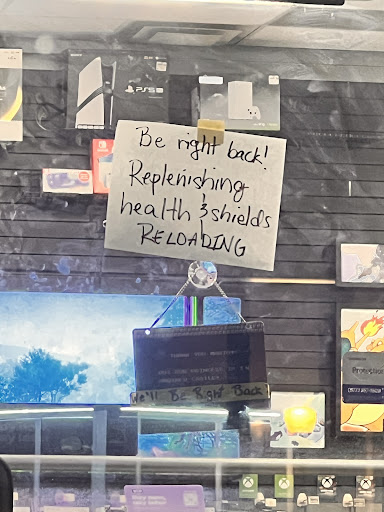 PS5
Be right back!
Replenishing
health & shields
RELOADING
We'll Be Right Back
Protection